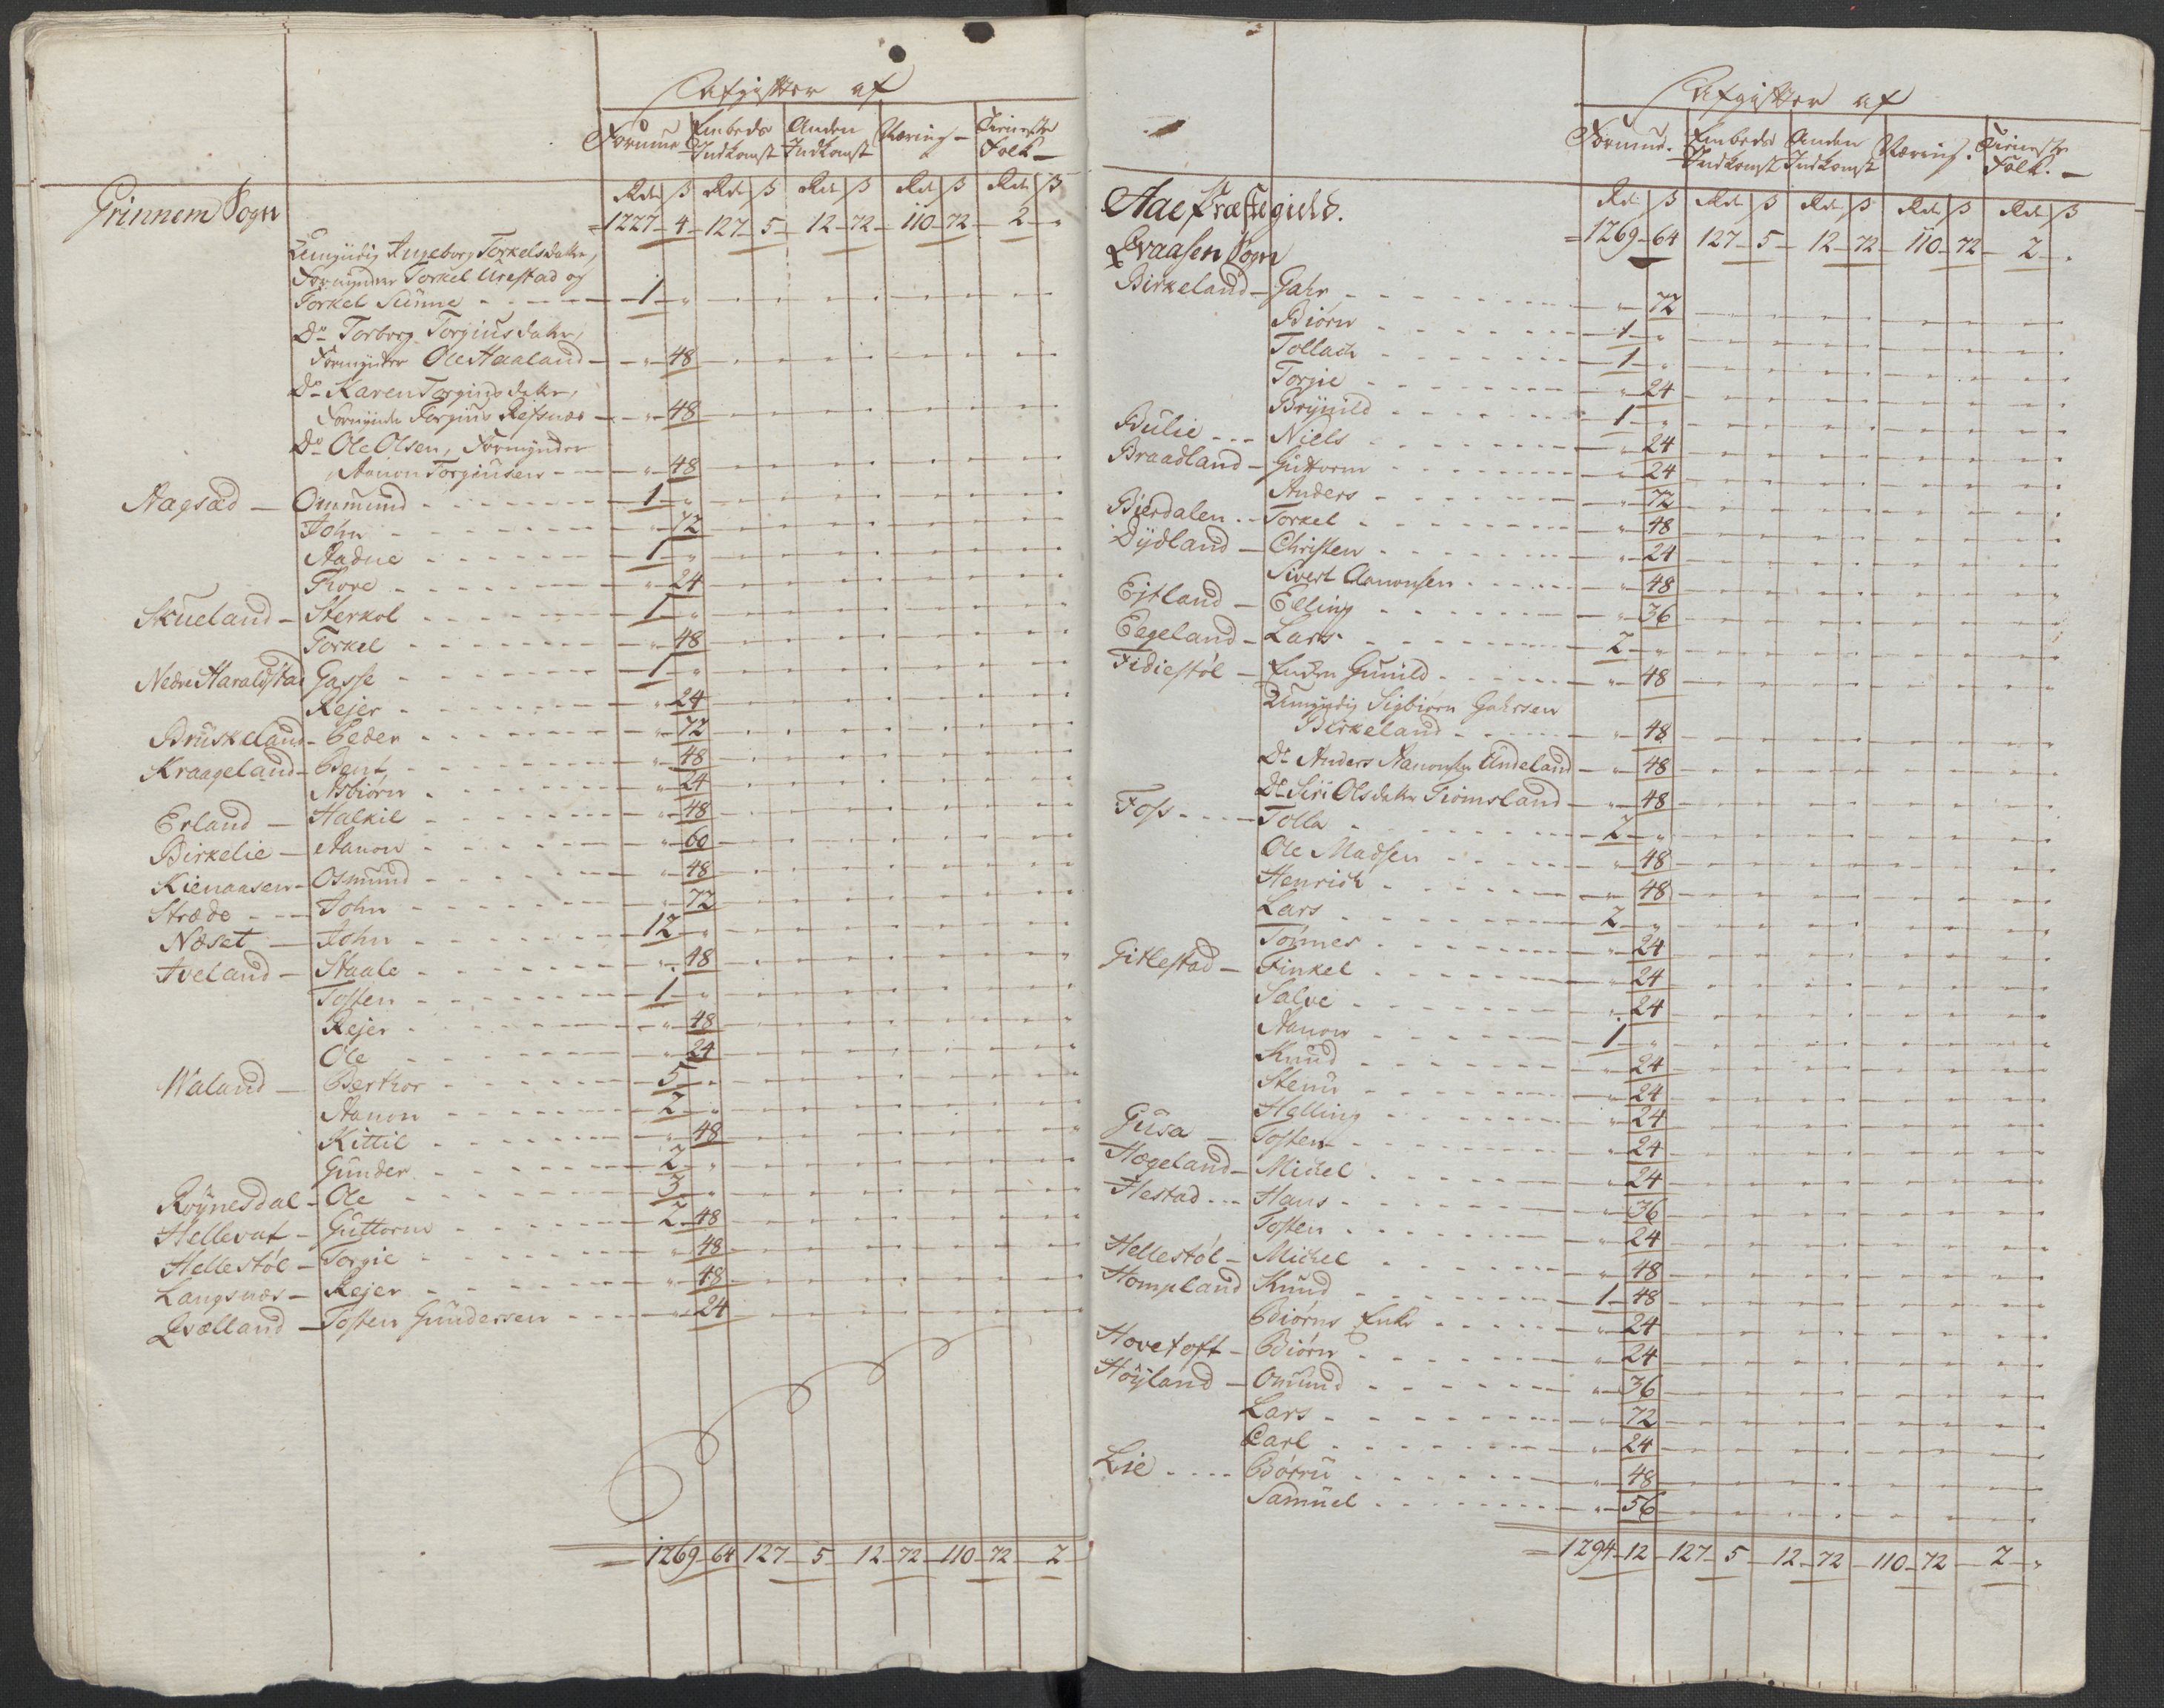 Afgifter af
Formue Embeds Indkomst Anden Indkomst Næring Tieneste Folk
Rd ß Rd ß Rd ß Rd ß Rd ß
Grinnem Sogn
1227 - 4 - 127 - 5 - 12 - 72 - 110 - 72 - 2 - "
Umyndig Ingeborg Torkelsdatter,
Formynder Torkel Urestad og
Torkel Sunne - 1 - "
Do Torborg Torgiusdatter,
Formynder Ole Haaland - " - 48
Do Karen Torgiusdatter,
Formynder Torgius Refsnæs - " - 48
Do Ole Olsen, Formynder
Aanon Torgiusen - " - 48
Aagsad - Ommund - 1 - "
John - " - 72
Aadne - 1 - "
Thore - " - 24
Skueland - Sterkol - 1 - "
Torkel - " - 48
Nedre Haralstad Gasse - 1 - "
Rejer - " - 24
Bruskeland - Peder - " - 72
Kraageland - Bent - " - 48
Asbiørn - " - 24
Erland - Halkil - " - 48
Birkelie - Aanon - " - 60
Kienaasen - Osmund - " - 48
Stræde - John - " - 72
Næset - John - 12 - "
Iveland - Staale - " - 48
Tosten - 1 - "
Rejer - " - 48
Ole - " - 24
Waland - Berthor - 5 - "
Aanon - 2 - "
Kittil - " - 48
Gunder - 2 - "
Røynesdal - Ole - 3 - "
Hellevat - Guttorm - 2 - 48
Hellestøl - Torgie - " - 48
Langsnæs - Rejer - " - 48
Qvælland - Tosten Gundersen - " - 24
= 1269 - 64 127 - 5 - 12 - 72 - 110 - 72 - 2
Afgifter af
Formue. Embeds Indkomst Anden Indkomst Næring. Tieneste Folk.
Rd ß Rd ß Rd ß Rd ß Rd ß
Aae Præstegield.
Qvaasen Sogn
= 1269 - 64 127 - 5 - 12 - 72 - 110 - 72 - 2 - "
Birkeland - Gahr - " - 72
Biørn - 1 - "
Tollach - 1 - "
Torgie - " - 24
Brynild - 1 - "
Bulie - Niels - " - 24
Braadland - Guttorm - " - 24
Anders - " - 72
Bierdalen - Torkel - " - 48
Dydland - Christen - " - 24
Sivert Aanonsen - " - 48
Ejtland - Elling - " - 36
Eegeland - Lars - 2 - "
Fidiestøl - Enken Gunild - " - 48
Umyndig Sigbiørn Gahrsen
Birkeland - " - 48
Do Anders Aanonsen Undeland - " - 48
Do Siri Olsdatter Tiomsland - " - 48
Foss - Tolla - 2 - "
Ole Madsen - " - 48
Henrich - " - 48
Lars - 2 - "
Tønnes - " - 24
Gitlestad - Finkel - " - 24
Salve - " - 24
Aanon - 1 - "
Knud - " - 24
Stenu - " - 24
Halling - " - 24
Gusa - Tosten - " - 24
Hægeland - Michel - " - 24
Hestad - Hans - " - 36
Tosten - " - 24
Hellestøl - Michel - " - 48
Hompland Knud - 1 - 48
Biørns Enke - " - 24
Hovetoft - Biørn - " - 24
Høyland - Omund - " - 36
Lars - " - 72
Carl - " - 24
Lie - Børru - " - 48
Samuel - " - 56
= 1294 - 12 - 127 - 5 - 12 - 72 - 110 - 72 - 2 - "